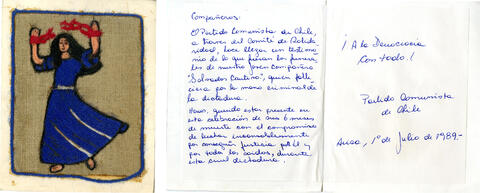 Compañeros:
El Partido Comunista de Chile,
a través del Comité de Solida
ridad, hace llegar un testimo
nio de lo que fueron los funera
les de nuestro joven compañero
"Salvador Cautivo", quien falle
ciera por la mano criminal de
la dictadura.
Hemos querido estar presente en
esta celebración de sus 6 meses
de muerte con el compromiso
de luchar incansablemente
por conseguir justicia por él y
por todos los caídos, durante
esta cruel dictadura.
¡A la Democracia
con todo!
Partido Comunista
de Chile
Arica, 1º de Julio de 1989.-